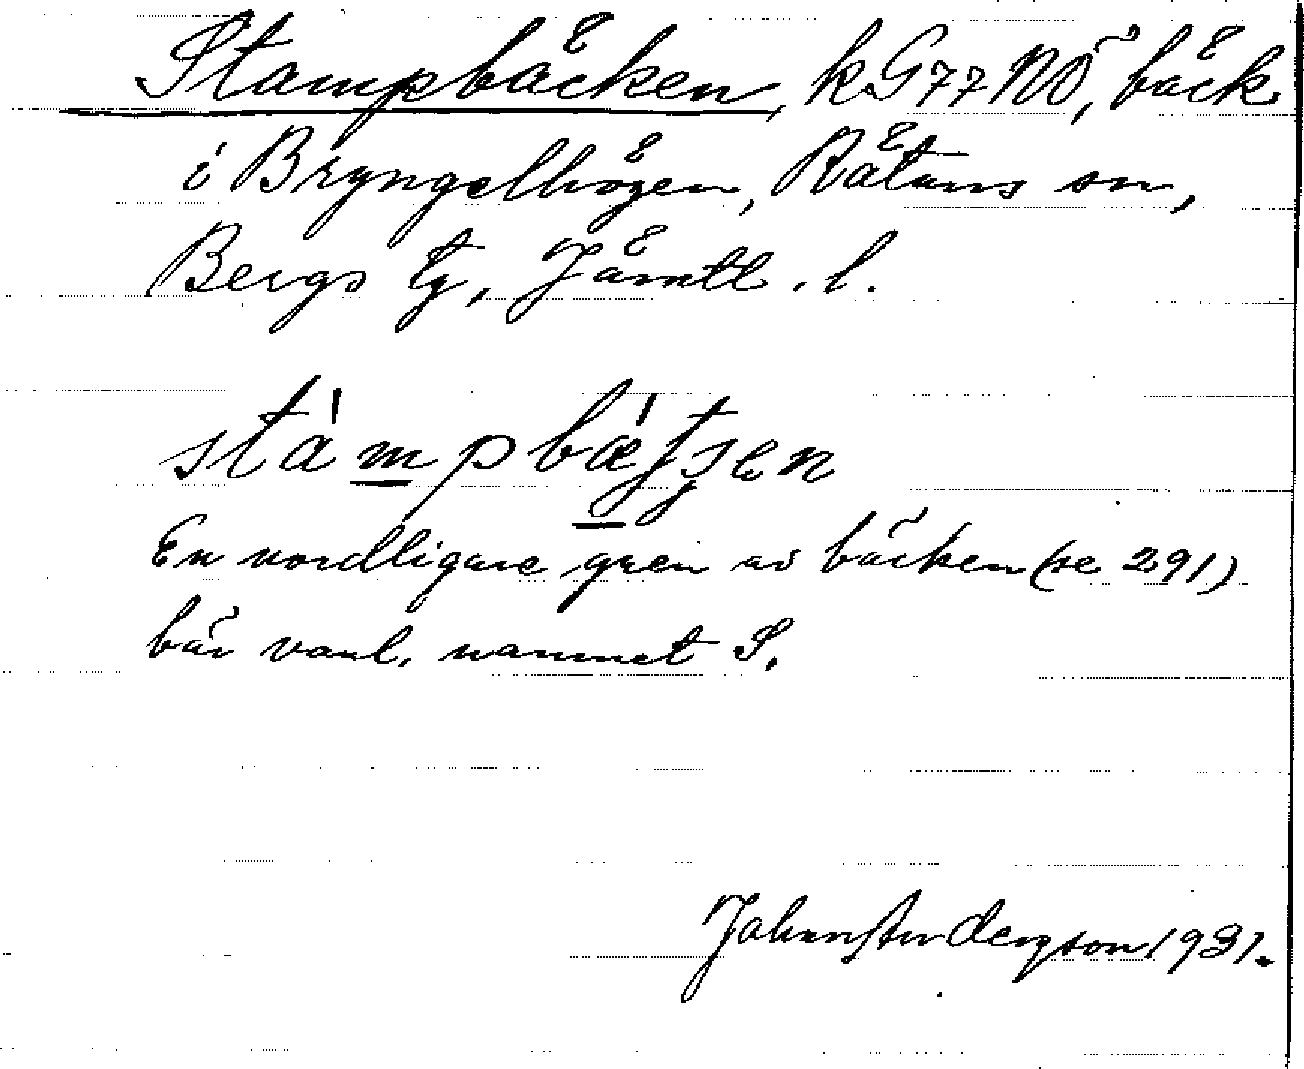 Stampbäcken, k.G77NÖ, bäck
i Bryngelhögen, Rätans sn,
Bergs tg, Jämtl. l.
stámpbǽʃʒen
En nordligare gren av bäcken (se 291)
bär vanl. namnet S.
Johan Anderzson 1931.